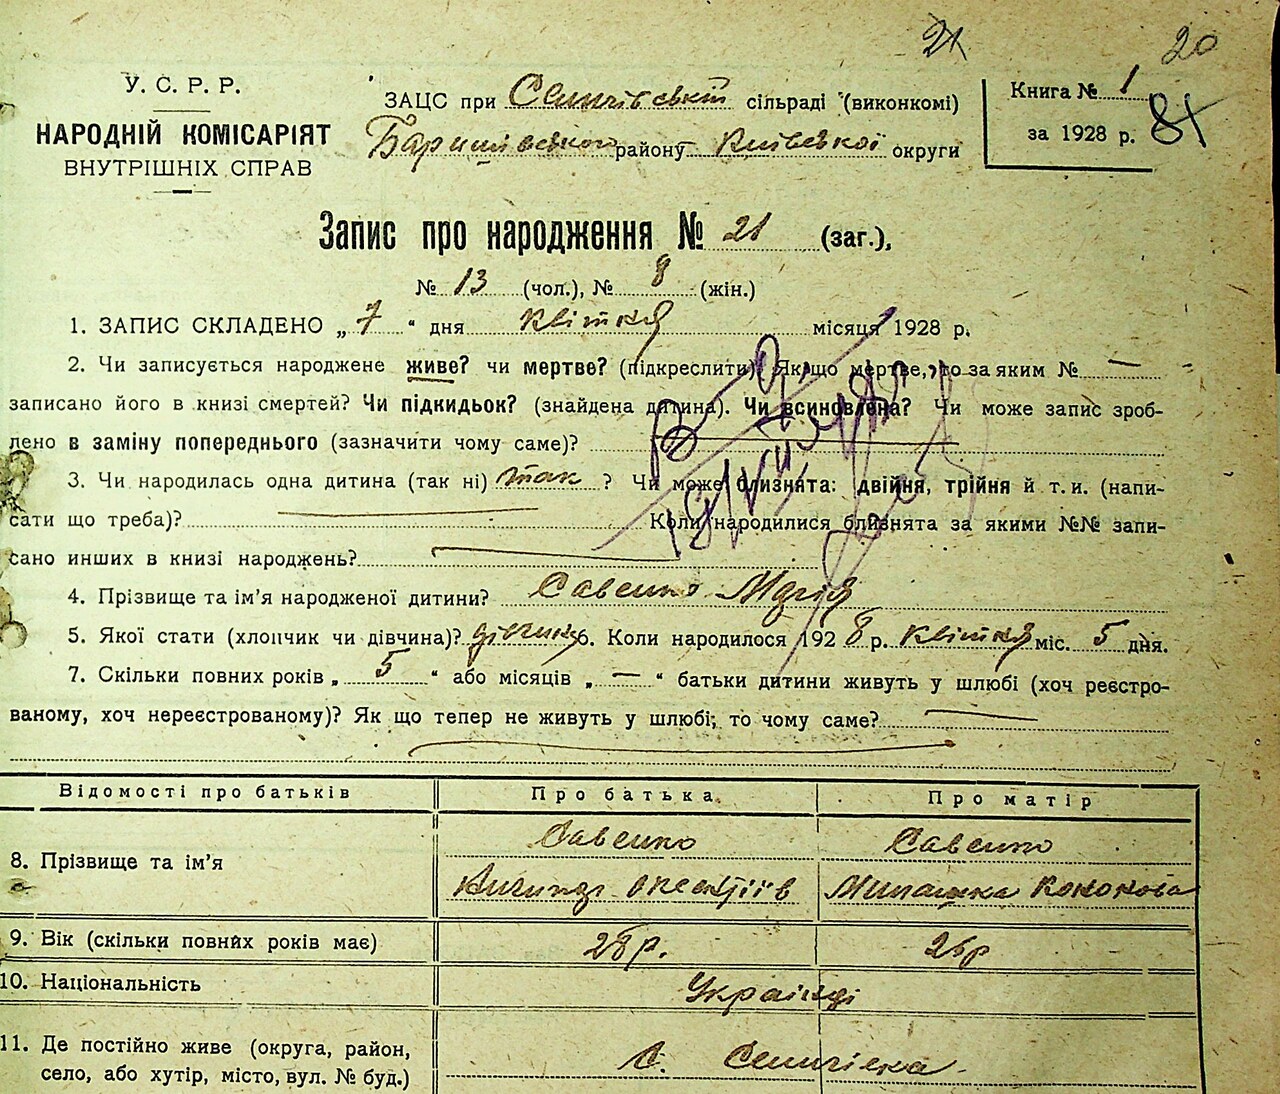 21
20
У. С. Р. Р.
НАРОДНІЙ КОМІСАРІЯТ
ВНУТРІШНІХ СПРАВ
ЗАЦС при Семичівській сільраді (виконкомі)
району Київської округи
Книга № 1
за 1928 р. 84
Запис про народження № 21 (заг.),
№ 13 (чол.), № 8 (жін.)
1. ЗАПИС СКЛАДЕНО „ 7 “ дня квітня місяця 1928 р.
2. Чи записується народжене живе? чи мертве? (підкреслити) Якщо мертве, то за яким № —
записано його в книзі смертей? Чи підкидьок? (знайдена дитина). Чи всиновлена? Чи може запис зроб-
лено в заміну попереднього (зазначити чому саме)?
3. Чи народилась одна дитина (так ні) так ? Чи може близнята: двійня, трійня й т. и. (напи-
сати що треба)? Коли народилися близнята за якими №№ запи-
сано инших в книзі народжень?
4. Прізвище та ім’я народженої дитини? Савенко Марія
5. Якої стати (хлопчик чи дівчина)? дівчина 6. Коли народилося 1928 р. квітня міс. 5 дня.
7. Скільки повних років „ 5 “ або місяців „ — “ батьки дитини живуть у шлюбі (хоч реєстро-
ваному, хоч нереєстрованому)? Як що тепер не живуть у шлюбі, то чому саме? —
Відомості про батьків Про батька Про матір
8. Прізвище та ім’я Савенко Савенко
Милашка Кононова
9. Вік (скільки повних років має) 28 р. 26 р
10. Національність Українці
11. Де постійно живе (округа, район,
село, або хутір, місто, вул. № буд.) С.